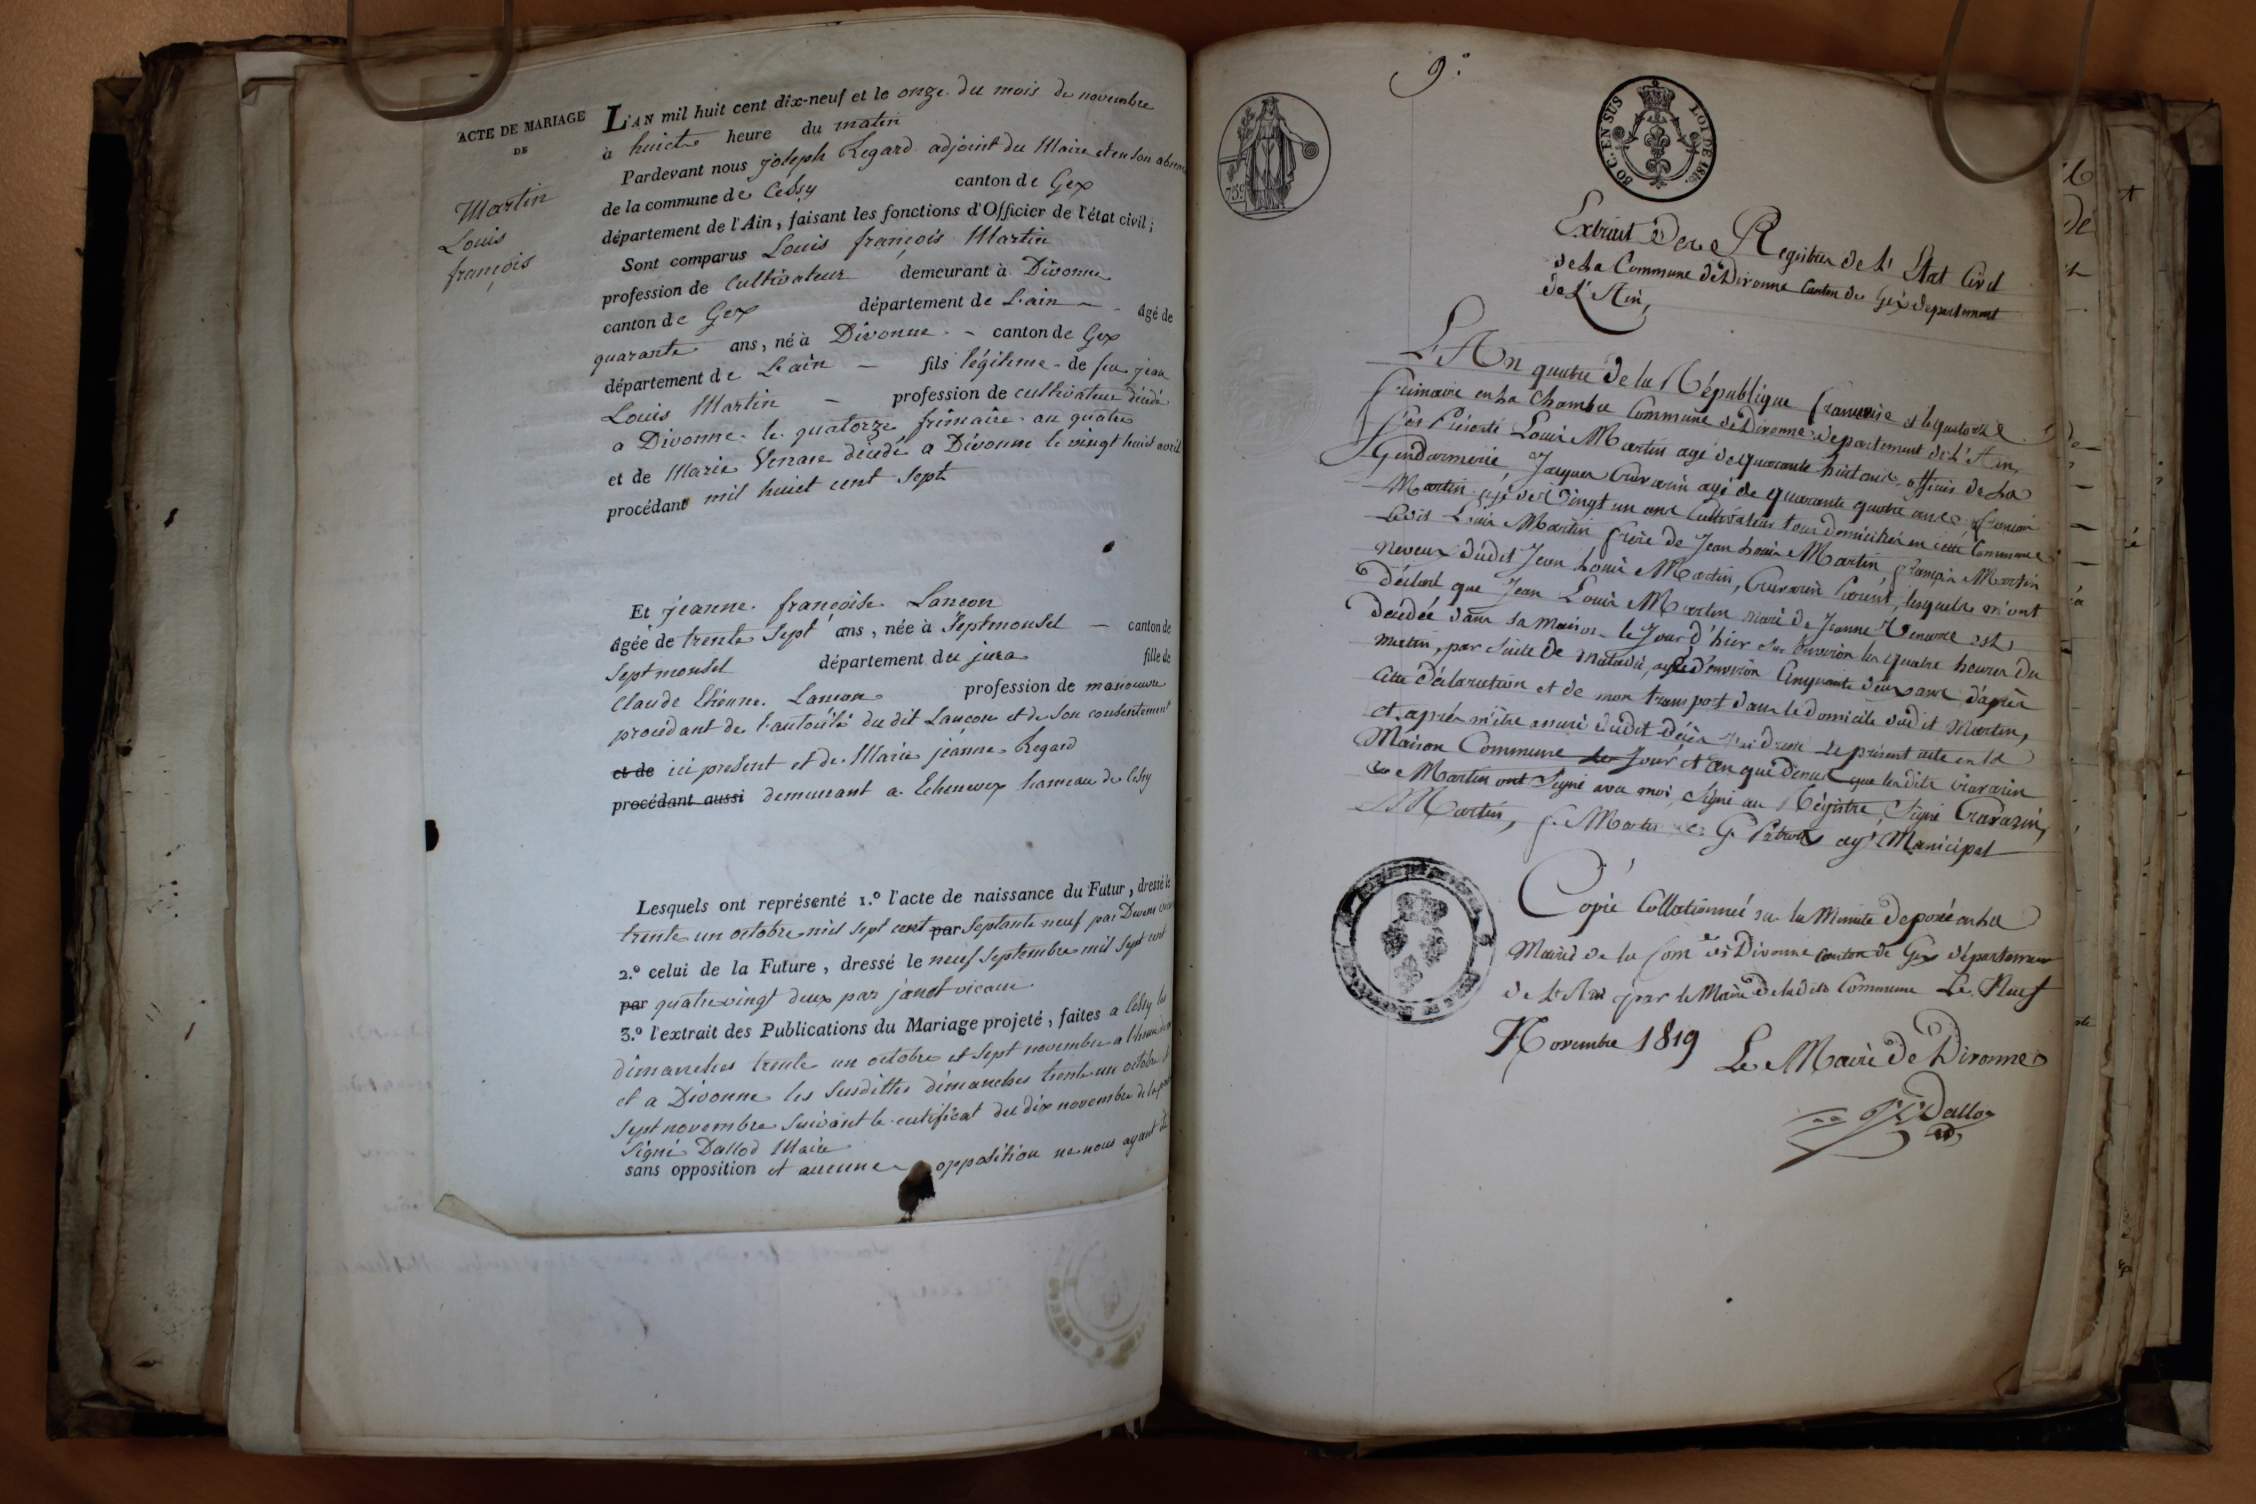 ACTE DE MARIAGE
DE
Martin
Louis
françois
L'AN mil huit cent dix-neuf et le onze du mois de novembre
à huict heure du matin
Pardevant nous joseph Regard adjoint du Maire et en son absence
de la commune de Cessy canton de Gex
département de l'Ain, faisant les fonctions d'Officier de l'état civil;
Sont comparus Louis françois Martin
profession de Cultivateur demeurant à Divonne
canton de Gex département de L'ain - âgé de
quarante ans, né à Divonne - canton de Gex
département de L'ain - fils légitime de feu jean
Louis Martin - profession de cultivateur décédé
a Divonne le quatorze frimaire an quatre
et de Marie Venare décédé a Divonne le vingt huit avril
procédant mil huict cent sept
Et jeanne françoise Lancon
âgée de trente sept ans, née à Septmonsel - canton de
Septmonsel département du jura fille de
Claude Etienne Lancon profession de manoeuvre
procédant de l'autorité du dit Lancon et de son consentement
et de ici present et de Marie jeanne Regard
procédant aussi demeurant a Echenevex hameau de Cessy
Lesquels ont représenté 1.º l'acte de naissance du Futur, dressé le
trente un octobre mil sept cent par septante neuf par
2.º celui de la Future, dressé le neuf Septembre mil Sept cent
par quatrevingt deux par janet vicaire
3.º l'extrait des Publications du Mariage projeté, faites a Cessy les
dimanches trente un octobre et sept novembre a
et a Divonne les susdittes dimanches trente un octobre
Sept novembre suivant le certificat du dix novembre
Signé Dallod Maire
sans opposition et aucune opposition ne nous ayant
9º
759
50 C. EN SUS LOI DE 1816
Extrait des Registres de L'Etat Civil
de la Commune de Divonne Canton de Gex departement
de L'Ain,
L'An quatre de la République francaise et le quatorze
frimaire en la Chambre Commune de Divonne departement de L'Ain,
Pierre Louis Martin agé de quarante huit ans officié de La
Gendarmerie, Jaques Cravarin agé de quarante quatre ans françois
Martin agé de vingt un ans Cultivateur tous domiciliés en cette Commune
Ledit Louis Martin frere de Jean Louis Martin, françois Martin
neveux dudit Jean Louis Martin, Cravarin lesquels m'ont
déclaré que Jean Louis Martin mari de Jeanne Venarre est
decedée dans sa maison le jour d'hier sur Environ les quatre heures du
matin, par suite de maladie, agé d'environ Cinquante deux ans d'après
cette déclaration et de mon transport dans le domicile dudit Martin,
et après m'être assuré dudit Décès j'ai dressé le présent acte en la
Maison Commune les Jour et an que dessus que lesdits Cravarin
et Martin ont Signé avec moi, Signé au Régistre, Signé Cravarin,
Martin, f. Martin G. agt Municipal
Copie Collationnée sur la Minute deposée en La
Mairie de la Com de Divonne Canton de Gex département
de L'Ain par le Maire de ladite Commune Le Neuf
Novembre 1819
Le Maire de Divonne
Dallod